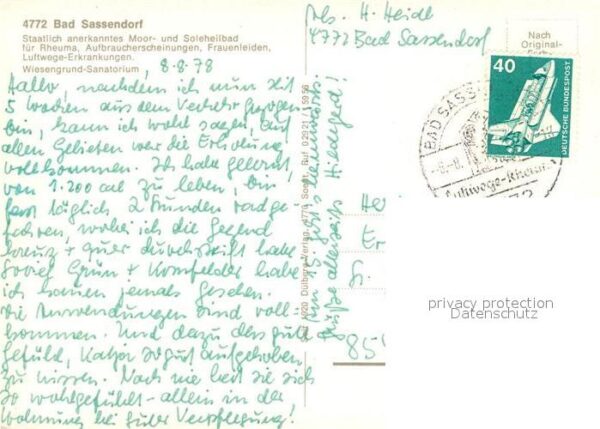 4772 Bad Sassendorf
Staatlich anerkanntes Moor- und Soleheilbad
für Rheuma, Aufbraucherscheinungen, Frauenleiden,
Luftwege-Erkrankungen.
Wiesengrund-Sanatorium, 8.8.78
Hallo, nachdem ich nun seit
5 Wochen aus dem Verkehr gezogen
bin, kann ich wohl sagen, auf
allen Gebieten war die Erholung
vollkommen. Ich habe gelernt,
von 1.200 cal zu leben, bin
fast täglich 2 Stunden radge-
fahren, wobei ich die Gegend
kreuz + quer durchstreift habe
Soviel Grün + Kornfelder habe
ich kaum jemals gesehen.
Die Anwendungen sind voll-
kommen. Und dazu das gute
Gefühl, Katja so gut aufgehoben
zu wissen. Noch nie hat sie sich
so wohlgefühlt - allein in der
Wohnung bei guter Verpflegung!
Am 15. geht's heimwärts.
Grüße allerseits Hildegard!
Abs. H. Heidl
4772 Bad Sassendorf
Nach
Original-
40
DEUTSCHE BUNDESPOST
BAD SASS
-8.-8.
Luftwege-Rheuma
He
Er
85
privacy protection
Datenschutz